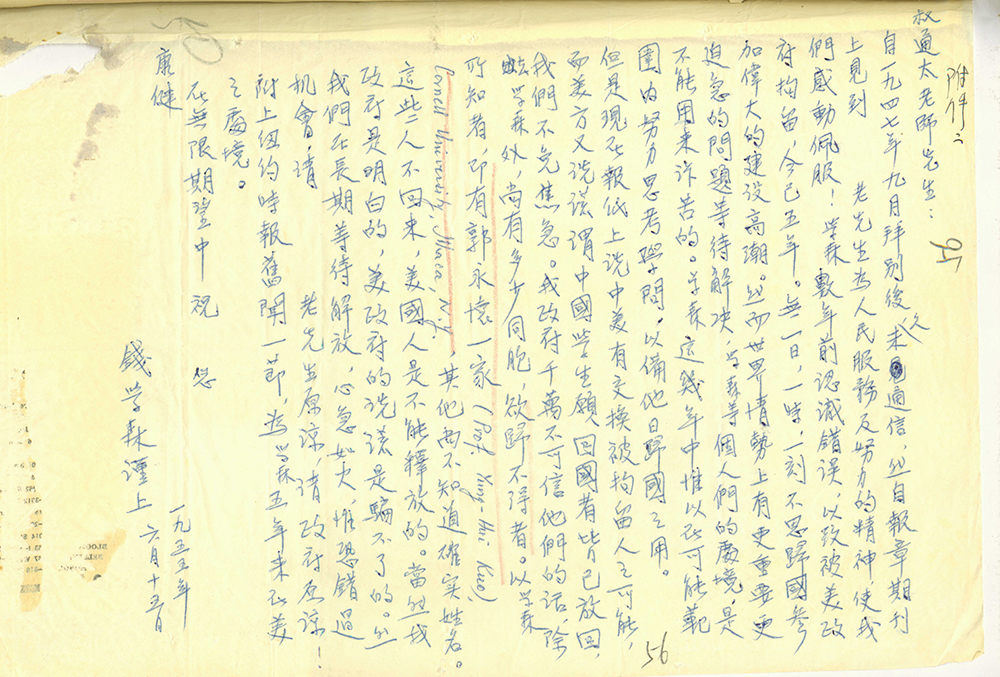 附件二
叔通太老師先生：
自一九四七年九月拜別後久未通信，然自報章期刊
上見到　老先生為人民服務及努力的精神，使我
們感動佩服！學森數年前認識錯誤，以致被美政
府拘留，今已五年。無一日，一時，一刻不思歸國參
加偉大的建設高潮。然而世界情勢上有更重要更
迫急的問題等待解決，学森等個人們的處境，是
不能用來訴苦的。学森這幾年中惟以在可能範
圍內努力思考學問，以備他日歸國之用。
但是現在報低上說中美有交換被拘留人之可能，
而美方又說謊謂中國学生願回國者皆已放回，
我們不免焦急。我政府千萬不可信他們的話，除
学森外，尚有多少同胞，欲歸不得者。以学森
所知者，即有郭永懷一家（Prof. Yung-Hui Kuo,
Cornell University, Ithaca, N.Y.），其他尚不知道確实姓名。
這些人不回来，美國人是不能釋放的。當然我
政府是明白的，美政府的說謊是騙不了的。然
我們在長期等待解放，心急如火，惟恐錯過
機會，請　老先生原諒，請政府原諒
附上紐約時報舊聞一節，為学森五年来在美
之處境。
在無限期望中祝　您
康健
錢学森謹上
一九五五年
六月十五日
56